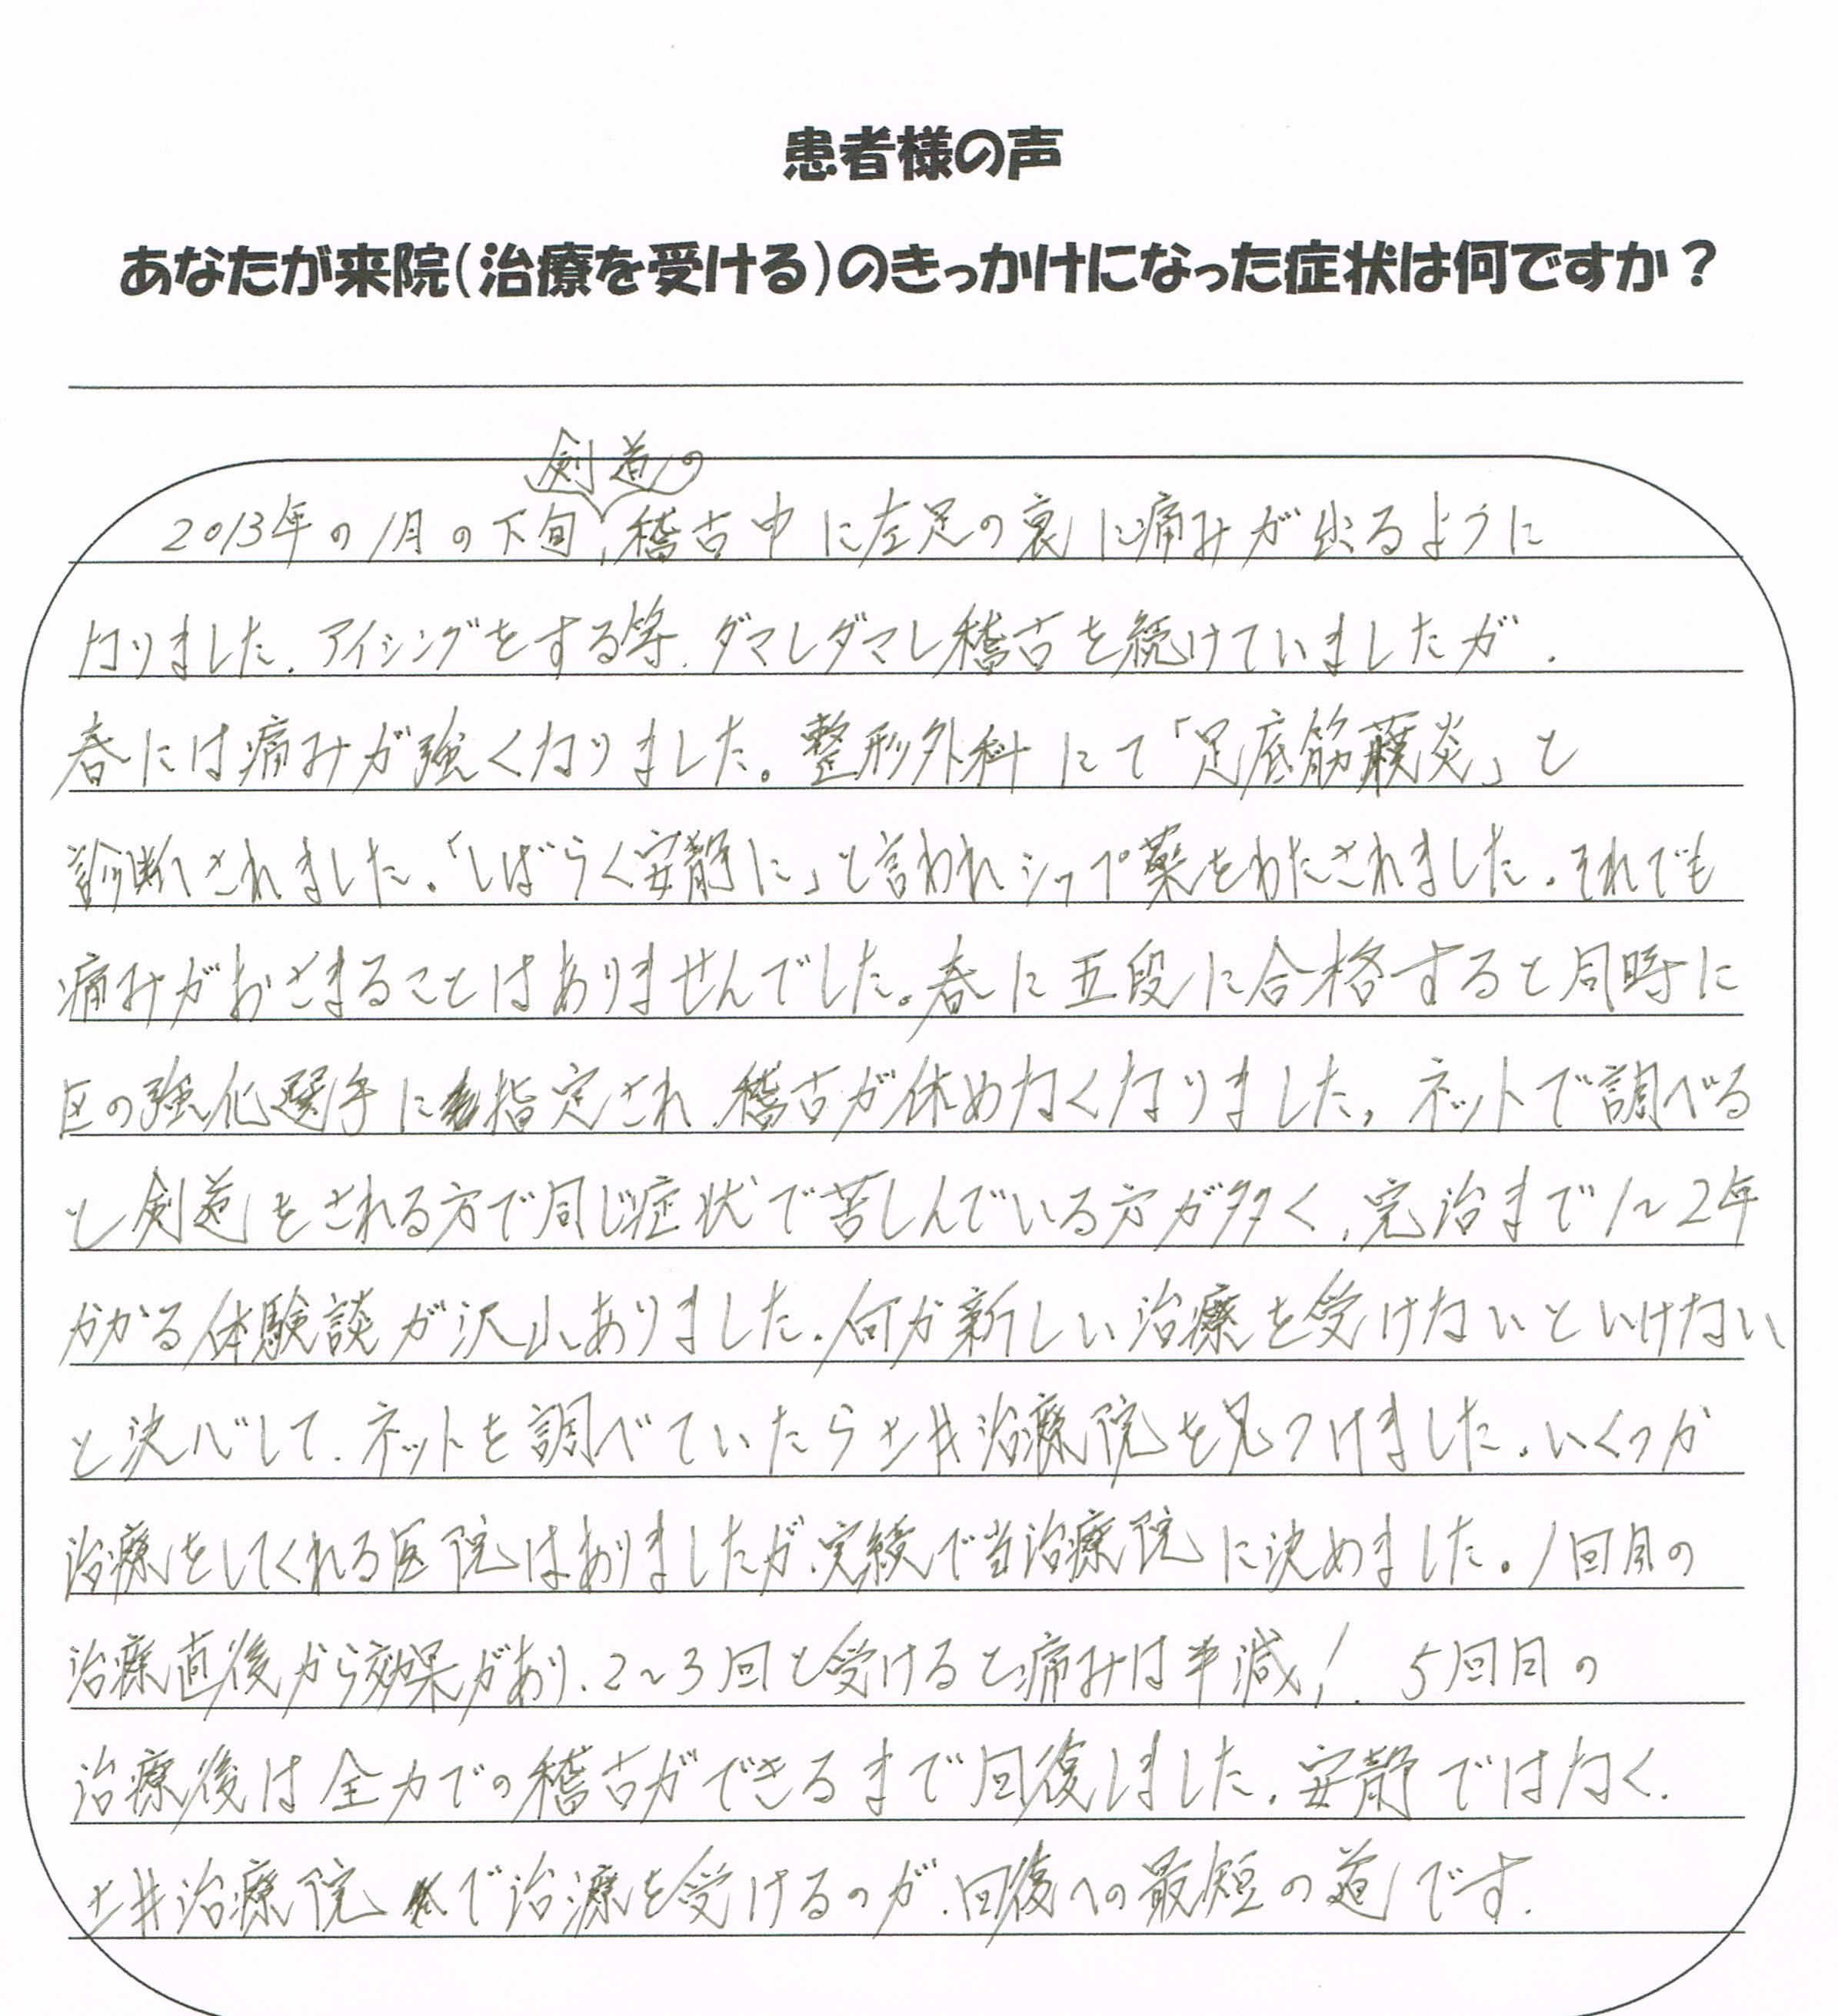 患者様の声
あなたが来院(治療を受ける)のきっかけになった症状は何ですか?
剣道の
2013年の1月の下旬、稽古中に左足の裏に痛みが出るように
なりました。アイシングをする等、ダマしダマし稽古を続けていましたが、
春には痛みが強くなりました。整形外科にて「足底筋膜炎」と
診断されました。「しばらく安静に」と言われシップ薬をわたされました。それでも
痛みがおさまることはありませんでした。春に五段に合格すると同時に
区の強化選手に指定され、稽古が休めなくなりました。ネットで調べる
と剣道をされる方で同じ症状で苦しんでいる方が多く、完治まで1~2年
かかる体験談が沢山ありました。何か新しい治療を受けないといけない
と決心して、ネットを調べていたら土井治療院を見つけました。いくつか
治療をしてくれる医院はありましたが、実績で当治療院に決めました。1回目の
治療直後から効果があり、2~3回と受けると痛みは半減!.5回目の
治療後は全力での稽古ができるまで回復しました。安静ではなく、
土井治療院で治療を受けるのが、回復への最短の道です.